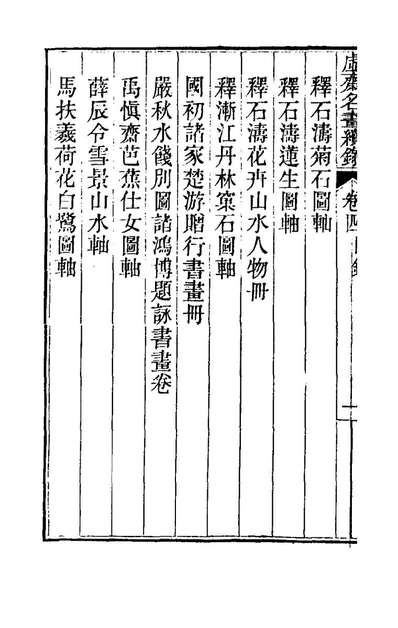 虛齋名畫續錄 卷四目錄
釋石濤菊石圖軸
釋石濤蓮生圖軸
釋石濤花卉山水人物冊
釋漸江丹林策石圖軸
國初諸家楚游贈行書畫冊
嚴秋水餞別圖諸鴻博題詠書畫卷
禹愼齋芭蕉仕女圖軸
薛辰令雪景山水軸
馬扶羲荷花白鷺圖軸